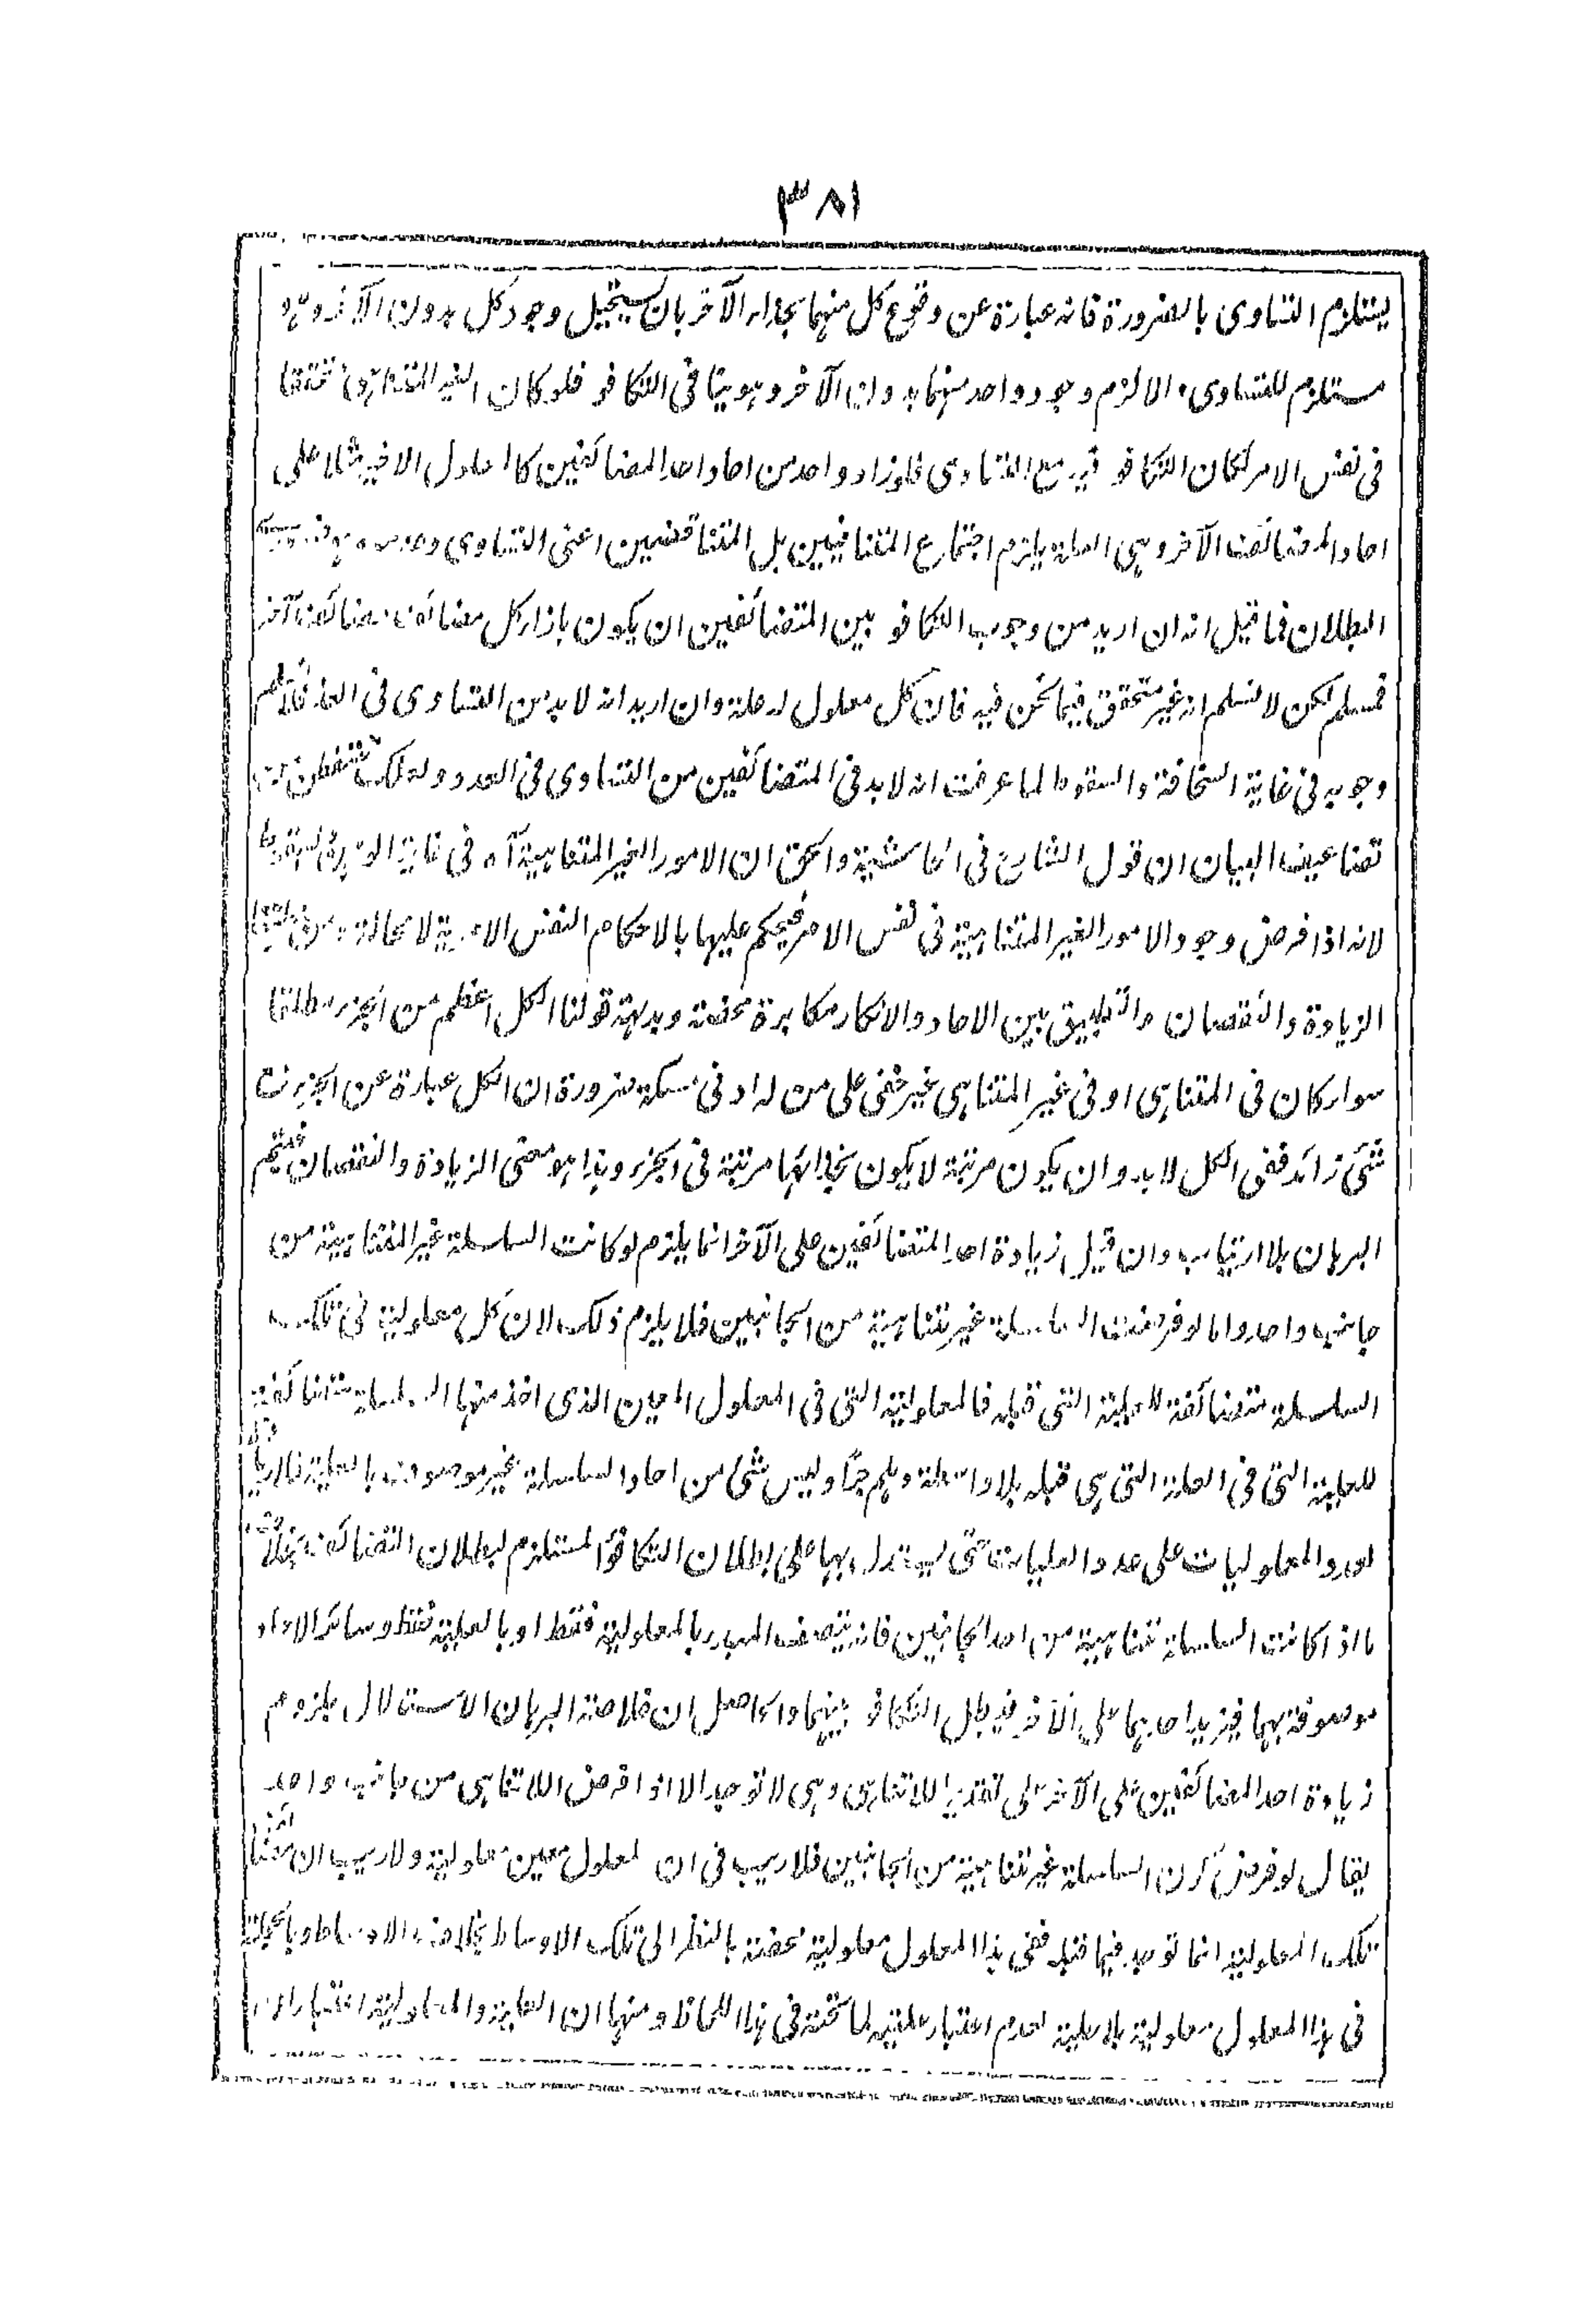 ٣٨١
يستلزم التساوى بالضرورة فانه عبارة عن وقوع كل منهما بحذاء الآخر بان يستحيل وجود كل بدون الآخر وهو
مستلزم للتساوى والا لزم وجود واحد منهما بدون الآخر وهو ينافى التكافو فلو كان الغير المتناهى متحققا
فى نفس الامر لكان التكافو فيه مع التساوى فلو زاد واحد من احاد احد المضائفين كالمعلول الاخير مثلا على
احاد المتضائف الآخر وهى العلة يلزم اجتماع المتنافيين بل المتناقضين اعنى التساوى وعدمه
البطلان فما قيل انه ان اريد من وجوب التكافو بين المتضائفين ان يكون بازاء كل مضائف مضائف آخر
فمسلم لكن لا نسلم انه غير متحقق فيما نحن فيه فان كل معلول له علة وان اريد انه لا بد من التساوى فى العدد فلا نسلم
وجوبه فى غاية السخافة والسقوط لما عرفت انه لا بد فى المتضائفين من التساوى فى العدد ولعلك تتفطن من
تضاعيف البيان ان قول الشارح فى الحاشية والحق ان الامور الغير المتناهية آه فى غاية السقوط
لانه اذا فرض وجود الامور الغير المتناهية فى نفس الامر فيحكم عليها بالاحكام النفس الامرية لا محالة
الزيادة والنقصان والتطبيق بين الاحاد والانكار مكابرة محضة وبديهة قولنا الكل اعظم من الجزء مطلقا
سواء كان فى المتناهى او فى غير المتناهى غير خفى على من له ادنى مسكة ضرورة ان الكل عبارة عن الجزء مع
شئ زائد ففى الكل لا بد وان يكون مرتبة لا يكون بحذائها مرتبة فى الجزء وهذا هو معنى الزيادة والنقصان فيتم
البرهان بلا ارتياب وان قيل زيادة احد المتضائفين على الآخر انما يلزم لو كانت السلسلة غير المتناهية من
جانب واحد واما لو فرضت السلسلة غير متناهية من الجانبين فلا يلزم ذلك لان كل معلولية فى تلك
السلسلة متضائفة للعلية التى قبله فالمعلولية التى فى المعلول المعين الذى اخذ منها السلسلة متضائفة
للعلية التى فى العلة التى هى قبله بلا واسطة وهلم جرا وليس شئ من احاد السلسلة غير موصوف بالعلية
عدد المعلوليات على عدد العليات حتى يستدل بها على ابطلان التكافؤ المستلزم لبطلان التضائف
ما اذا كانت السلسلة متناهية من احد الجانبين فانه يتصف المبدء بالمعلولية فقط او بالعلية فقط وسائر الاحاد
موصوفة بهما فيزيد احدهما على الآخر فيبطل التكافو بينهما والحاصل ان خلاصة البرهان الاستدلال بلزوم
زيادة احد المضائفين على الآخر على تقدير اللاتناهى وهى لا توجد الا اذا فرض اللاتناهى من جانب واحد
يقال لو فرض كون السلسلة غير متناهية من الجانبين فلا ريب فى ان لمعلول معين معلولية ولا ريب ان
تلك المعلولية انما توجد فيما قبله ففى هذا المعلول معلولية محضة بالنظر الى تلك الاوساط بخلاف الاوساط وبالجملة
فى هذا المعلول معلولية بلا علية لعدم اعتبار علية لما تحته فى هذا اللحاظ ومنها ان العلية والمعلولية اعتباران